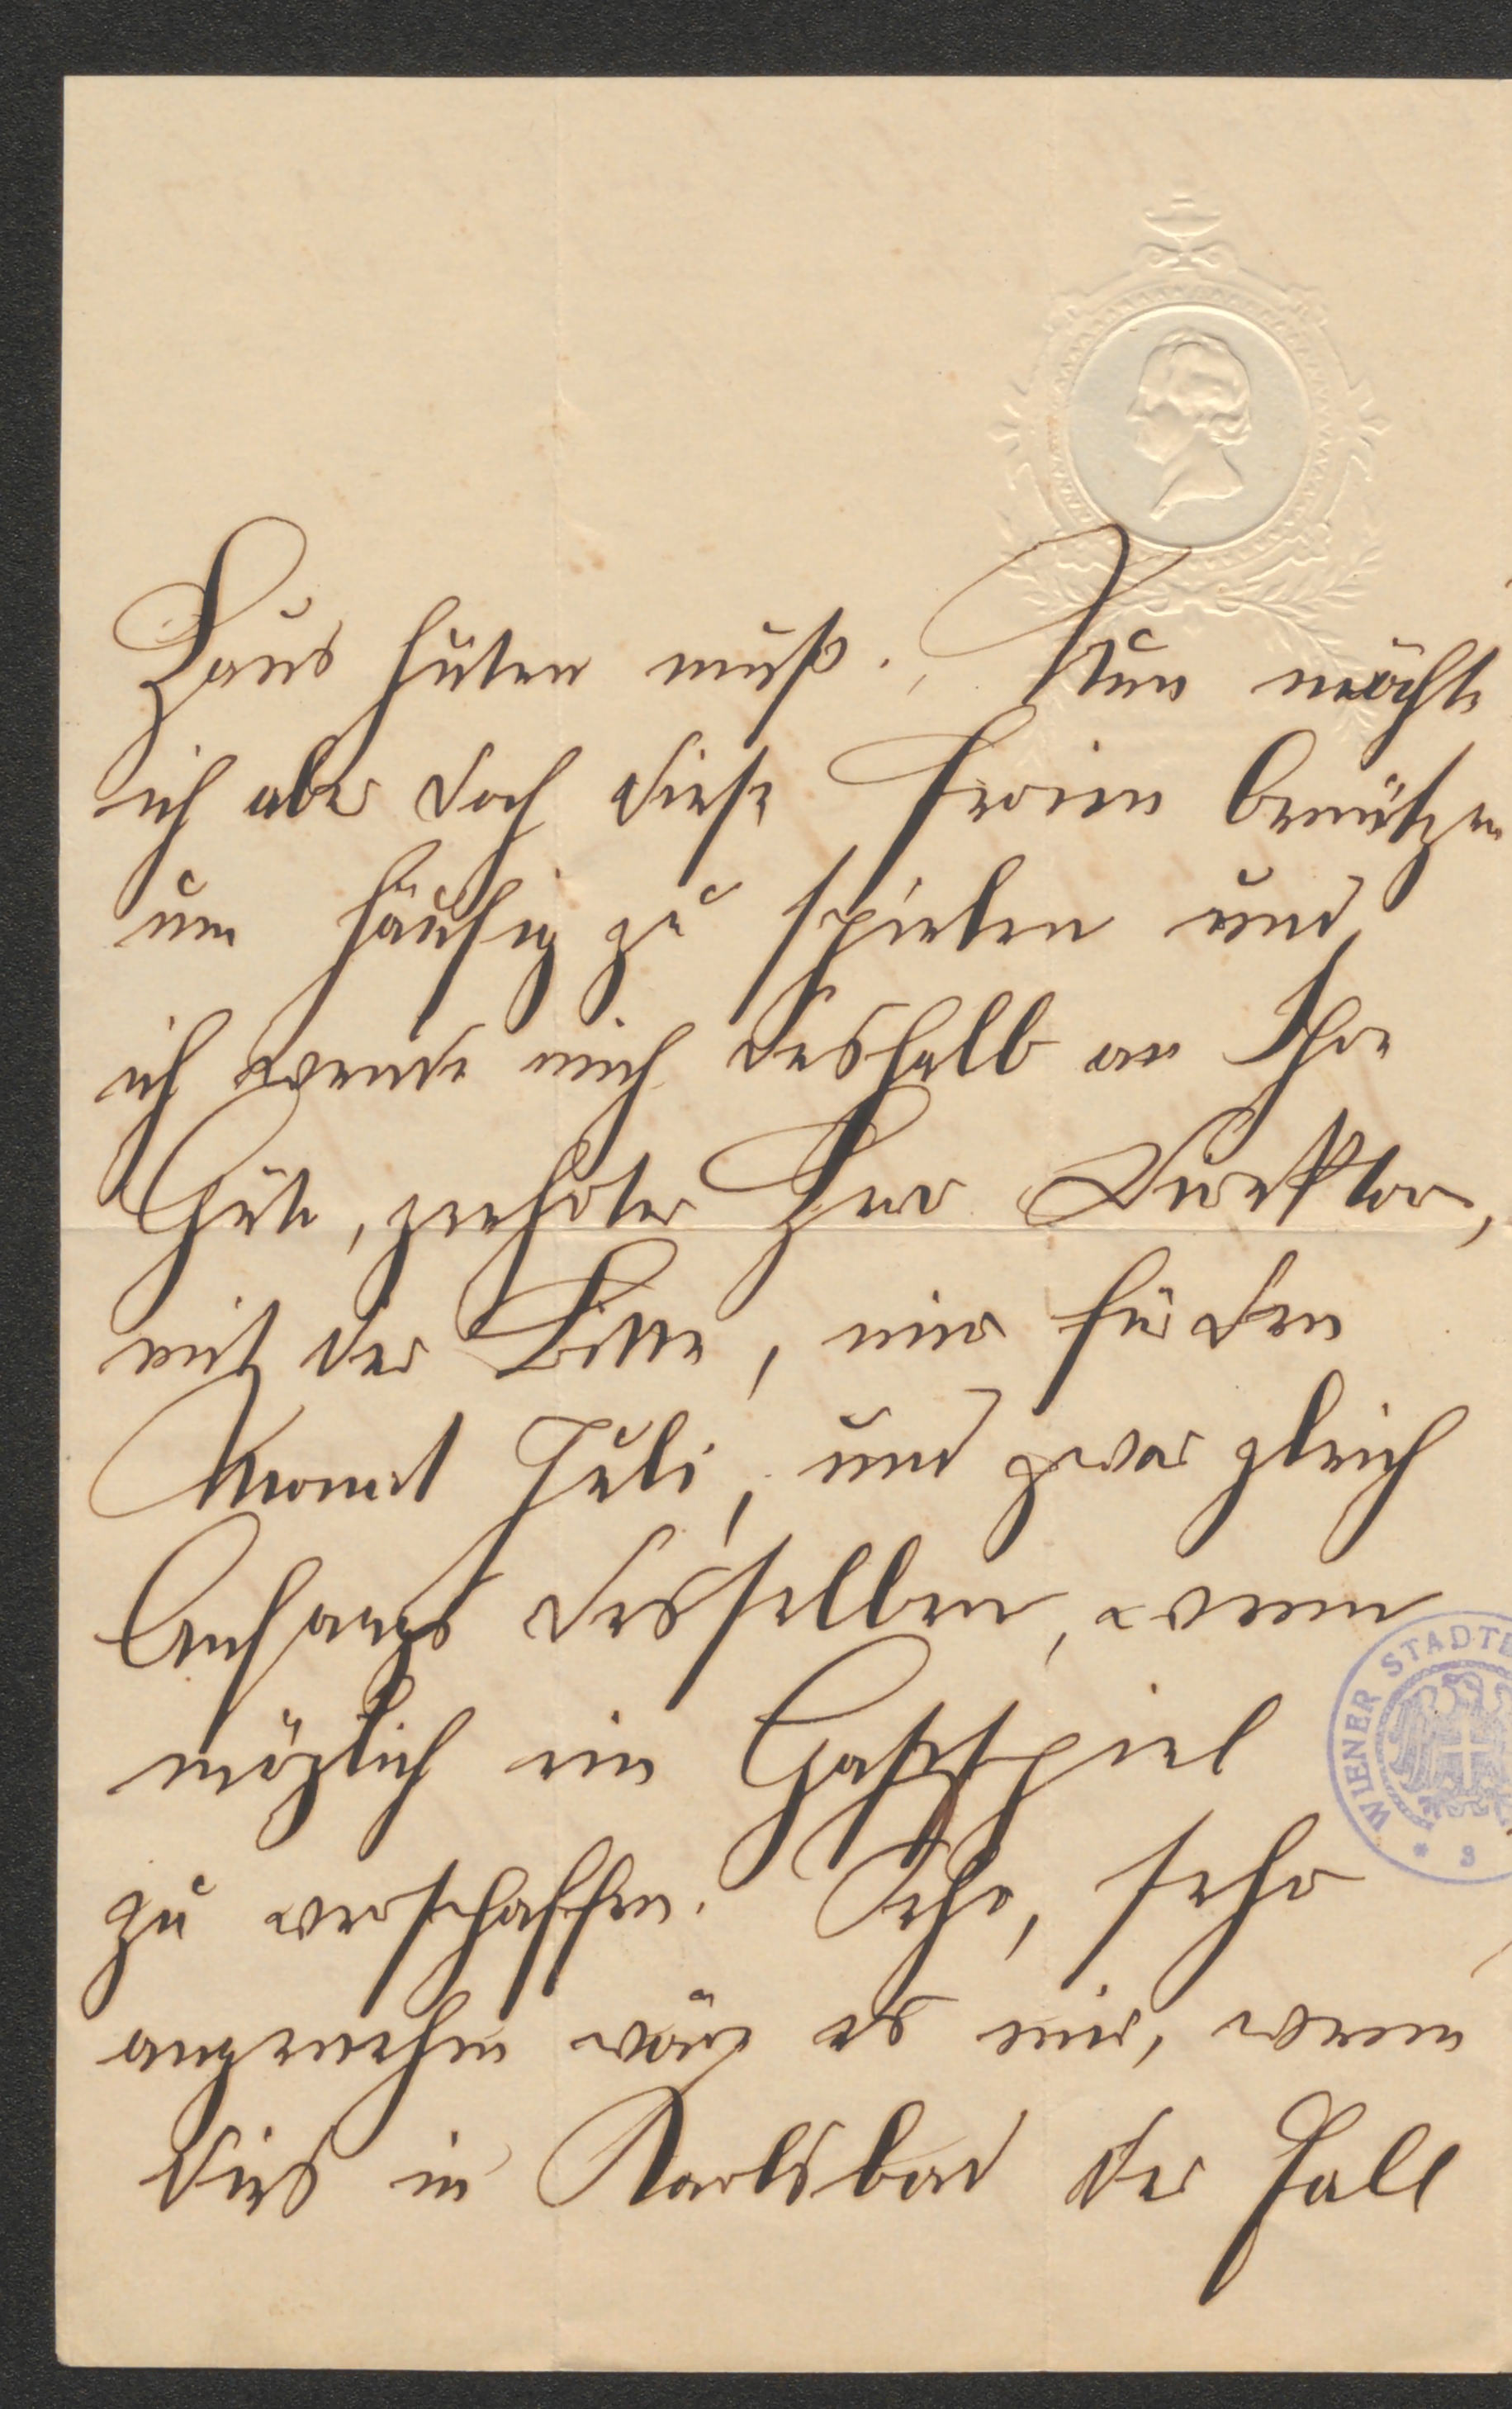 Haus hüten muß. Nun möchte
ich aber doch diese Ferien benützen
um häufig zu spielen und
ich wende mich deshalb an Ihre
Güte, geehrter Herr Direktor,
mit der Bitte, mir für den
Monat Juli, und zwar gleich
Anfangs desselben, wenn
möglich ein Gastspiel
zu verschaffen. Sehr, sehr
angenehm wäre es mir, wenn
dies in Karlsbad der Fall
WIENER STADT